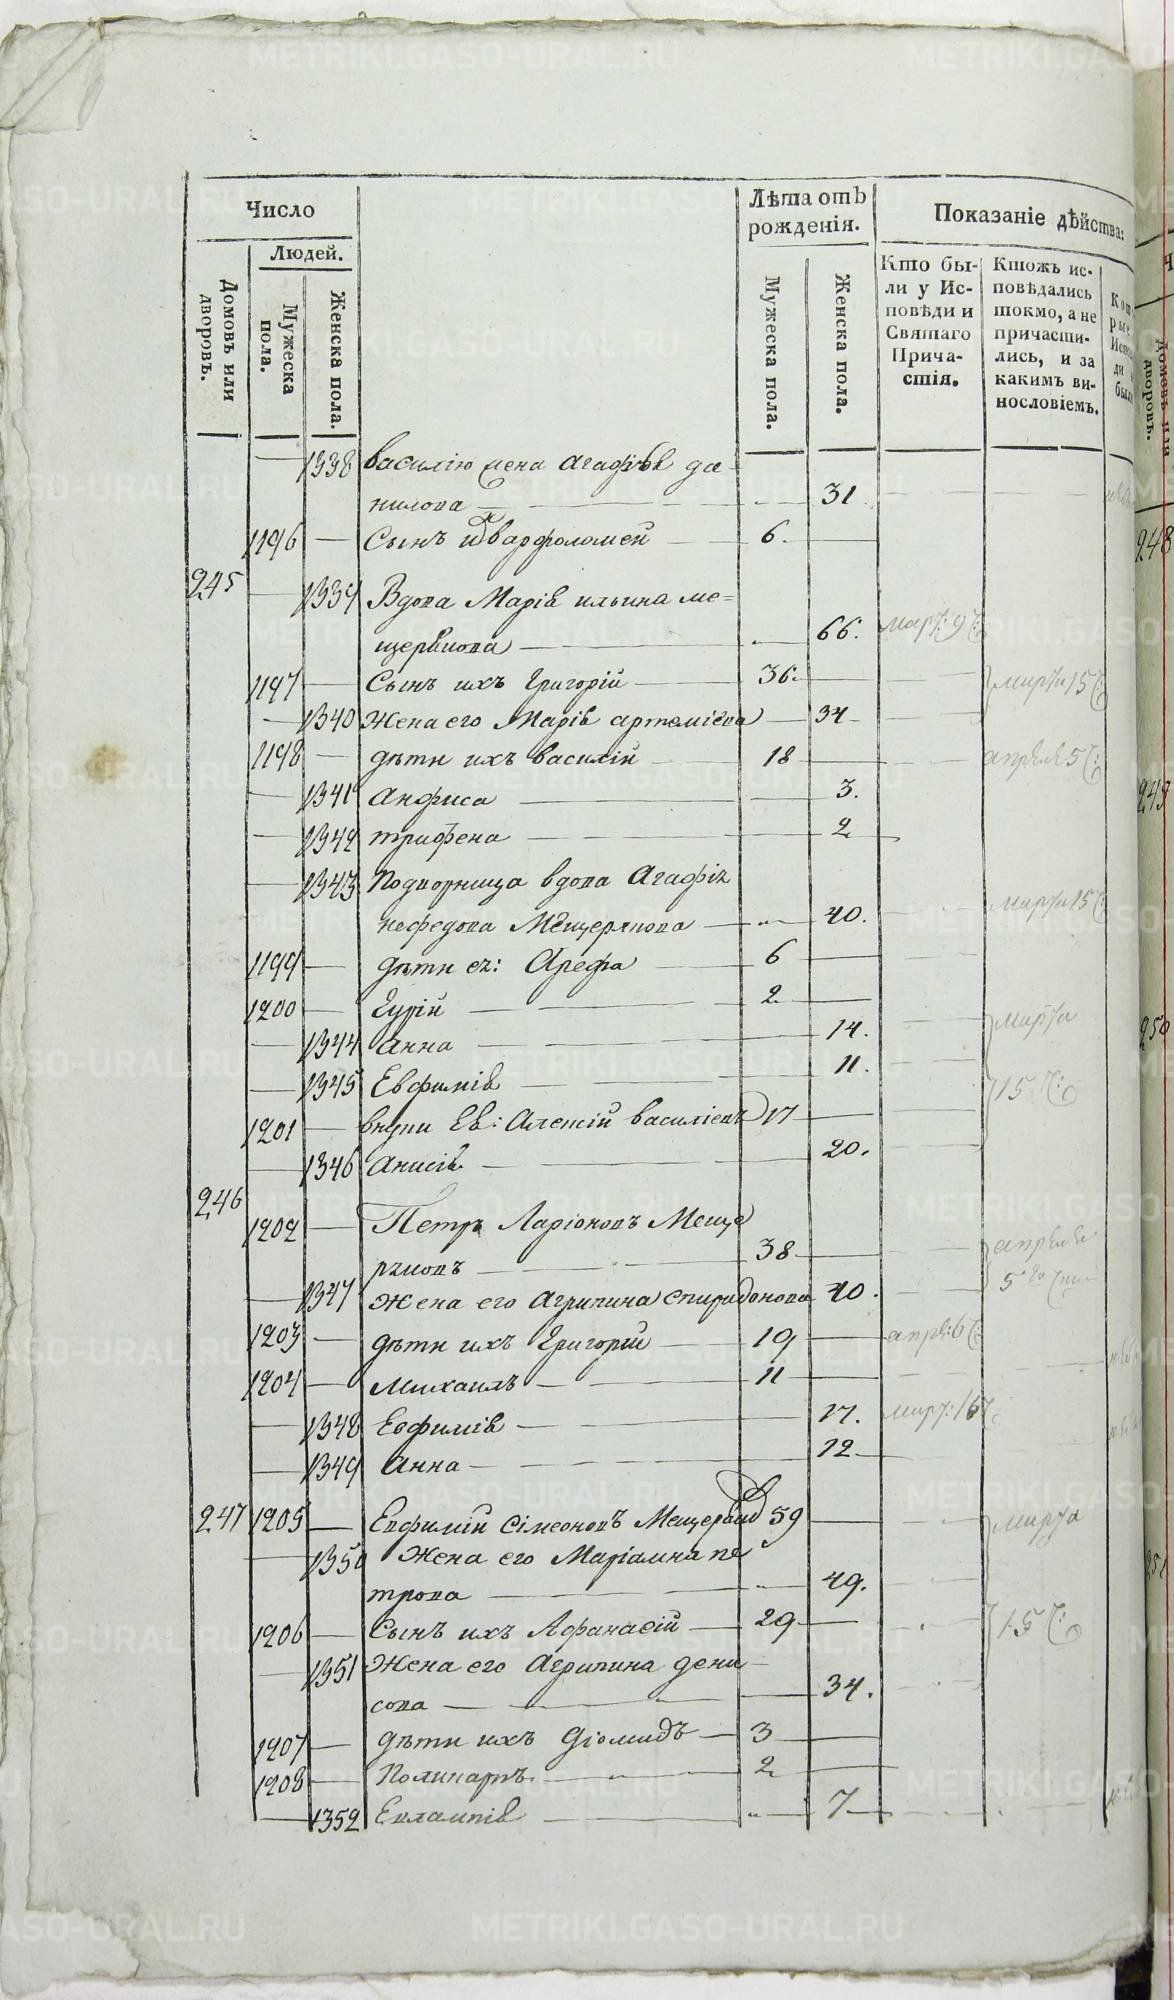 Число
Лѣта отъ рождения.
Показаніе дѣйства:
Людей.
Домовъ или дворовъ.
Мужеска пола.
Женска пола.
Мужеска пола.
Женска пола.
Кто были у Исповѣди и Святаго Причастія.
Ктожъ исповѣдались токмо, а не причастились, и за какимъ винословіемъ.
1338 василію жена Агафія да-
нилова 31
1196 Сынъ их варфоломей 6.
245 1339 Вдова Марія ильина ме=
щерякова 66. март: 9 ч:
1197 Сынъ ихъ Григорій 36. марта 15 ч:
1340 Жена его Марія артеміева 34
1198 дѣти ихъ василій 18 апрѣля 5 ч:
1341 Анфиса 3.
1342 трифена 2
1343 Подворница вдова Агафія
нефедова Мещерякова 40. марта 15 ч:
1199 дѣти ея: Арефа 6
1200 Гурій 2
1344 Анна 14. марта
1345 Евфимія 11. 15 ч:
1201 внуки Ев: Алексій василіевъ 17
1346 Анисія 20.
246 1202 Петръ Ларіоновъ Меще
ряковъ 38 апрѣля
1347 Жена его Агрипина спиридонова 40. 5 го
1203 дѣти ихъ Григорій 19 апрѣ: 6 ч:
1204 Михаилъ 11
1348 Евфимія 17. март: 16 ч:
1349 Анна 12
247 1205 Евфимій Сімеоновъ Мещеряков 59 марта
1350 Жена его Маріамна пе
трова 49.
1206 Сынъ ихъ Афанасій 29 15 ч:
1351 Жена его Агрипина дени
сова 34.
1207 дѣти ихъ Діомидъ 3
1208 Поликарпъ 2
1352 Евлампія 7
METRIKI.GASO-URAL.RU